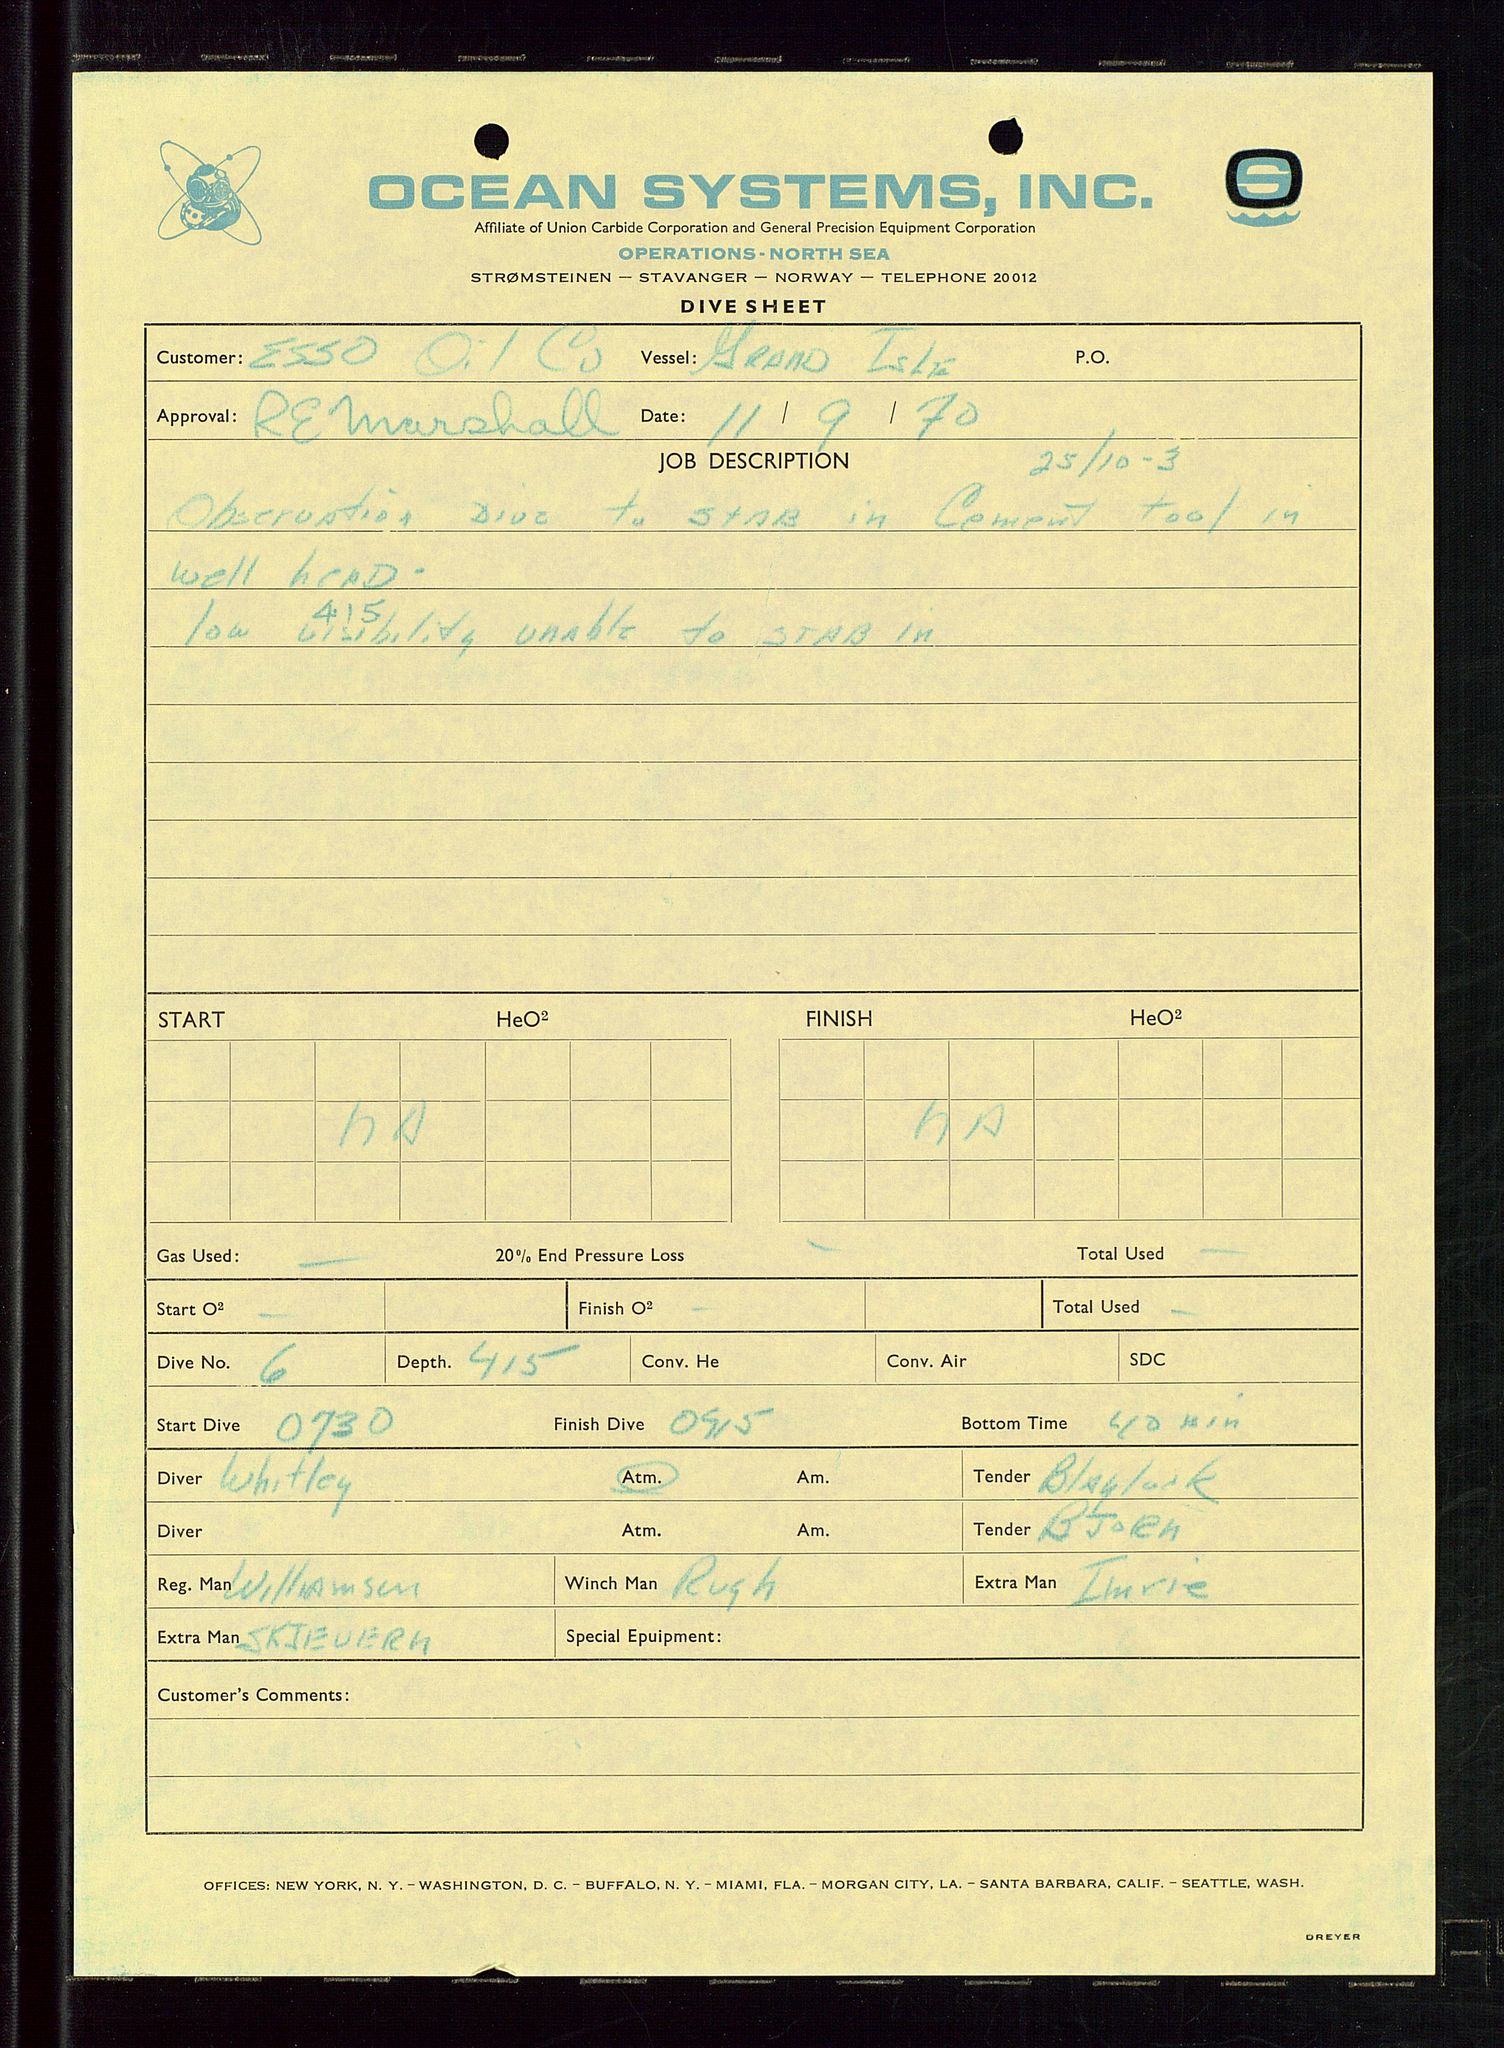 OCEAN SYSTEMS, INC.
Affiliate of Union Carbide Corporation and General Precision Equipment Corporation
OPERATIONS - NORTH SEA
STRØMSTEINEN — STAVANGER — NORWAY — TELEPHONE 20012
DIVE SHEET
Customer: ESSO Oil Co Vessel: GRAND ISLE P.O.
Approval: R E Marshall Date: 11 / 9 / 70
JOB DESCRIPTION 25/10-3
Observation Dive to STAB in Cement tool in
well heAD.
415
low visibility unable to STAB in
START HeO² FINISH HeO²
NA NA
Gas Used: — 20% End Pressure Loss — Total Used —
Start O² — Finish O² — Total Used —
Dive No. 6 Depth. 415 Conv. He Conv. Air SDC
Start Dive 0730 Finish Dive 0915 Bottom Time 40 min
Diver Whitley Atm. Am. Tender Blaylock
Diver Atm. Am. Tender BJORN
Reg. Man Williamsen Winch Man Rugh Extra Man Imrie
Extra Man SKJEVERN Special Epuipment:
Customer's Comments:
OFFICES: NEW YORK, N. Y. – WASHINGTON, D. C. – BUFFALO, N. Y. – MIAMI, FLA. – MORGAN CITY, LA. – SANTA BARBARA, CALIF. – SEATTLE, WASH.
DREYER